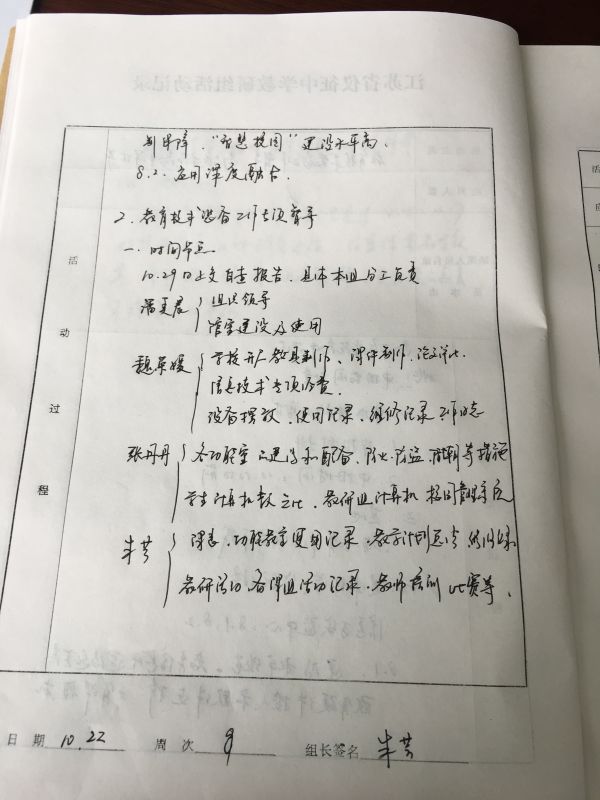 制保障、"智慧校园"建设水平高.
8.2. 应用深度融合.
2. 教育技术装备工作专项督导
一. 时间节点
10.29日上交自查报告. 具体本组分工负责
潘夏晨 组织领导
馆室建设及使用
魏英媛 学校开展教具制作、课件制作、论文评比.
信息技术专项检查.
设备摆放、使用记录、维修记录 工作日志
张丹丹 各功能室 建设和配备、防火、防盗、防潮等措施
学生计算机数之比、教研组计算机
朱芸 课表、功能教室使用记录、教学计划总结
教研活动、备课组活动记录、教师培训 比赛等.
活动过程
日期 10.22 周次 9 组长签名 朱芸